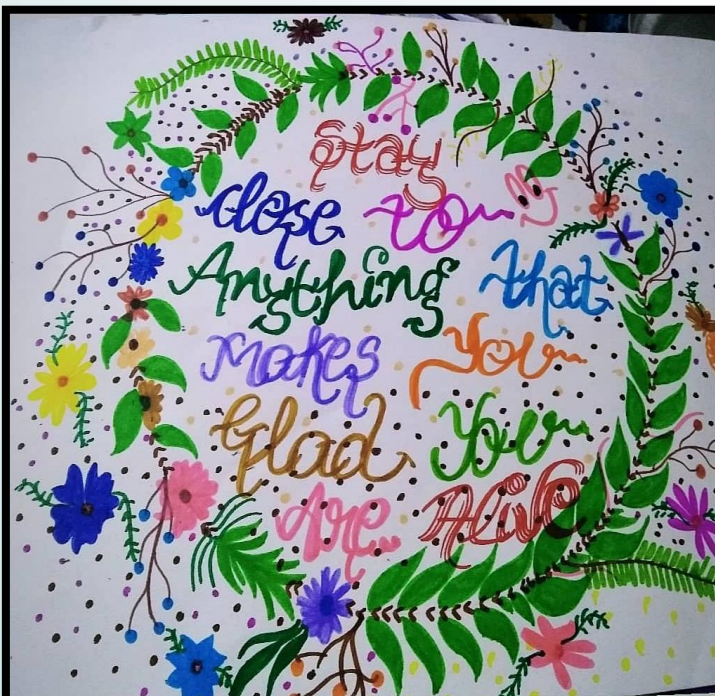 Stay
close to
Anything that
Makes You
Glad You
Are Alive